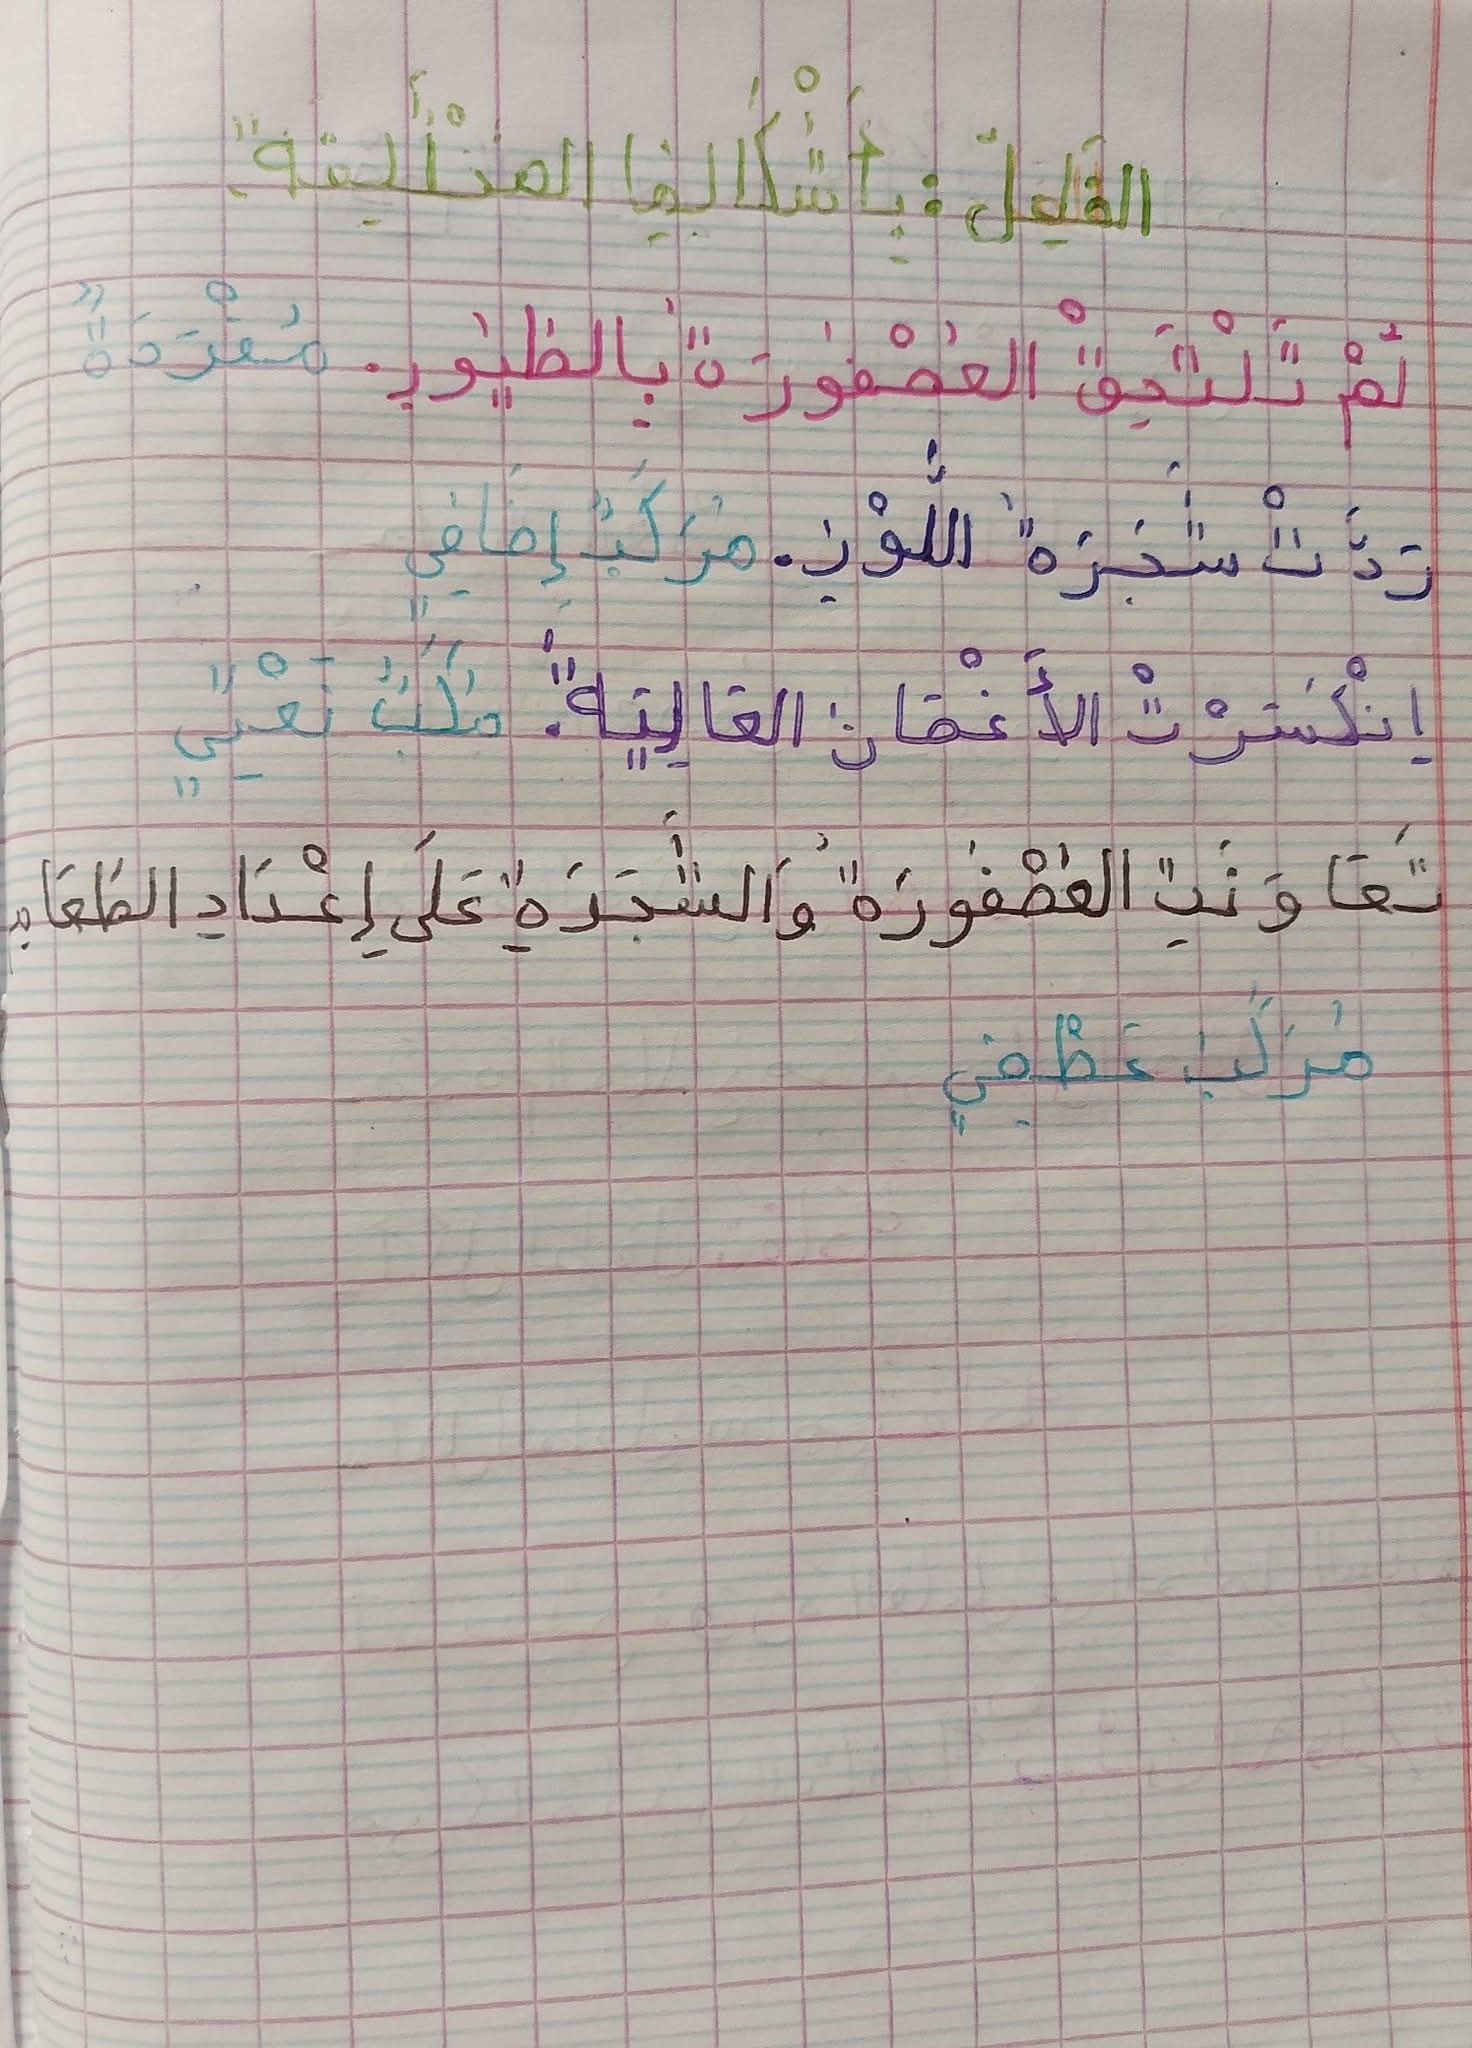 الفَاعِلُ فِي أَشْكَالِهَا المُخْتَلِفَةِ
لَمْ تَلْتَحِقْ العُصْفُورَةُ بِالطُيُورِ. مُفْرَدَةٌ
رَدَّتْ شَجَرَةُ اللَّوْزِ. مُرَكَبٌ إِضَافِيٍ
اِنْكَسَرْتْ الأَغْصَانُ العَالِيَةُ. مُرَكَبٌ نَعْتِيٍ
تَعَاوَنَتِ العُصْفُورَةُ وَالشَّجَرَةِ عَلَى إِعْدَادِ الطَعَامِ
مُرَكَبُ عَطْفِيٍ